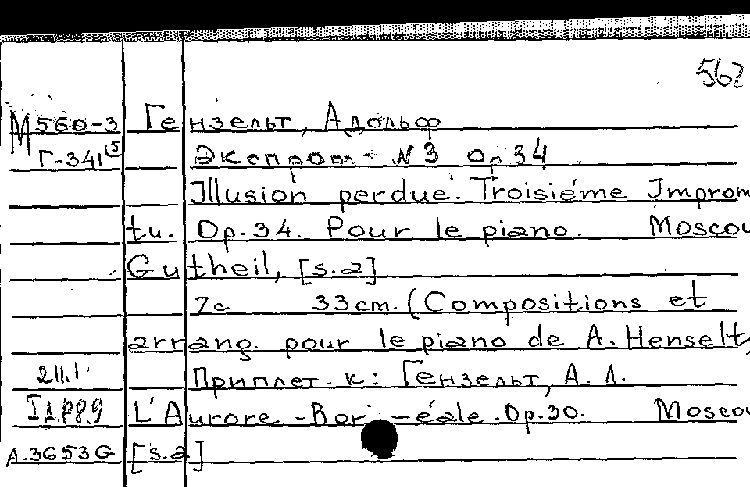 562
М560-3 Гензельт, Адольф
Г-341(5) Экспромт N3 op.34
Illusion perdue. Troisiéme Impromp
tu. Op.34. Pour le piano. Moscou
Gutheil, [s.a]
7c 33cm. (Compositions et
arrang. pour le piano de A. Henselt,
Приплет. к: Гензельт, А. Л.
L'Aurore -Bor -éale. Op.30. Moscou
А.3653G [s.a]